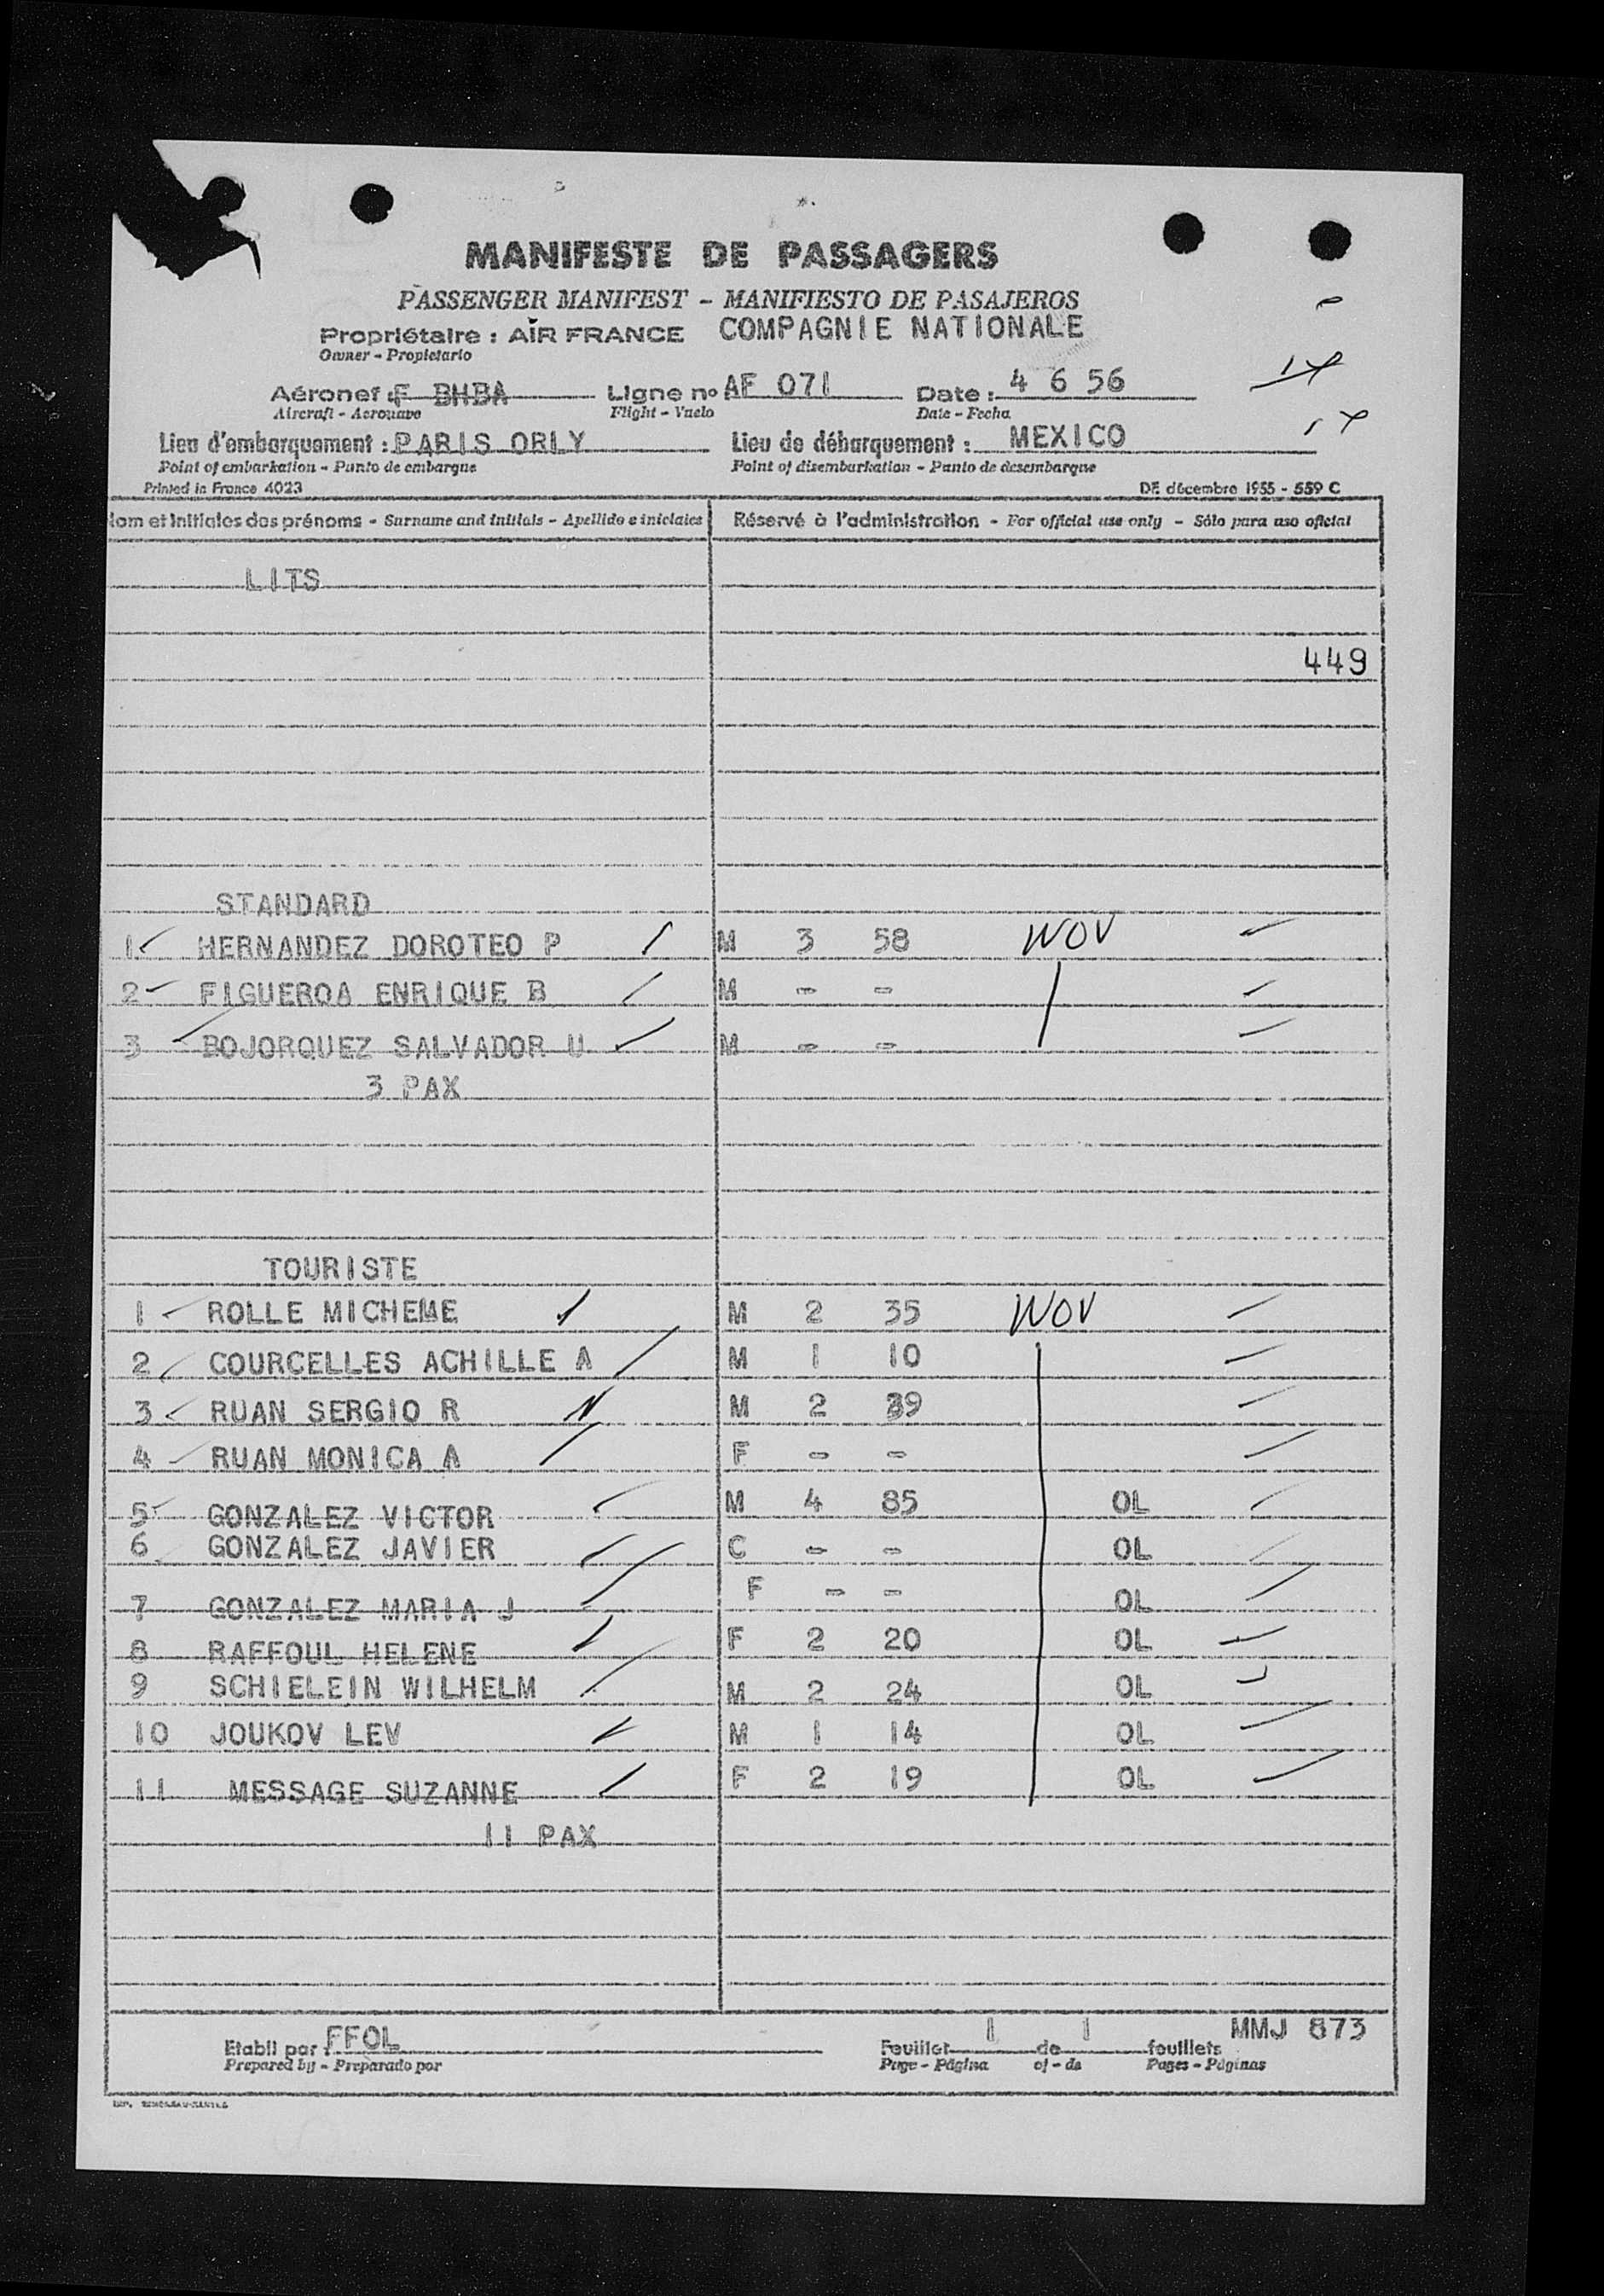 MANIFESTE DE PASSAGERS
PASSENGER MANIFEST - MANIFIESTO DE PASAJEROS
Propriétaire : AIR FRANCE COMPAGNIE NATIONALE
Owner - Propietario
Aéronef : F BHBA Ligne no AF 071 Date : 4 6 56
Aircraft - Aeronave Flight - Vuelo Date - Fecha
Lieu d'embarquement : PARIS ORLY Lieu de débarquement : MEXICO
Point of embarkation - Punto de embarque Point of disembarkation - Punto de desembarque
Printed in France 4023 DE décembre 1955 - 559 C
Nom et initiales des prénoms - Surname and initials - Apellido e iniciales Réservé à l'administration - For official use only - Sólo para uso oficial
LITS
449
STANDARD
1 HERNANDEZ DOROTEO P M 3 58 WOV
2 FIGUEROA ENRIQUE B M - -
3 BOJORQUEZ SALVADOR U M - -
3 PAX
TOURISTE
1 ROLLE MICHELE M 2 35 WOV
2 COURCELLES ACHILLE A M 1 10
3 RUAN SERGIO R M 2 39
4 RUAN MONICA A F - -
5 GONZALEZ VICTOR M 4 85 OL
6 GONZALEZ JAVIER C - - OL
7 GONZALEZ MARIA J F - - OL
8 RAFFOUL HELENE F 2 20 OL
9 SCHIELEIN WILHELM M 2 24 OL
10 JOUKOV LEV M 1 14 OL
11 MESSAGE SUZANNE F 2 19 OL
11 PAX
Etabli par : FFOL Feuillet 1 de 1 feuillets MMJ 873
Prepared by - Preparado por Page - Página of - de Pages - Páginas